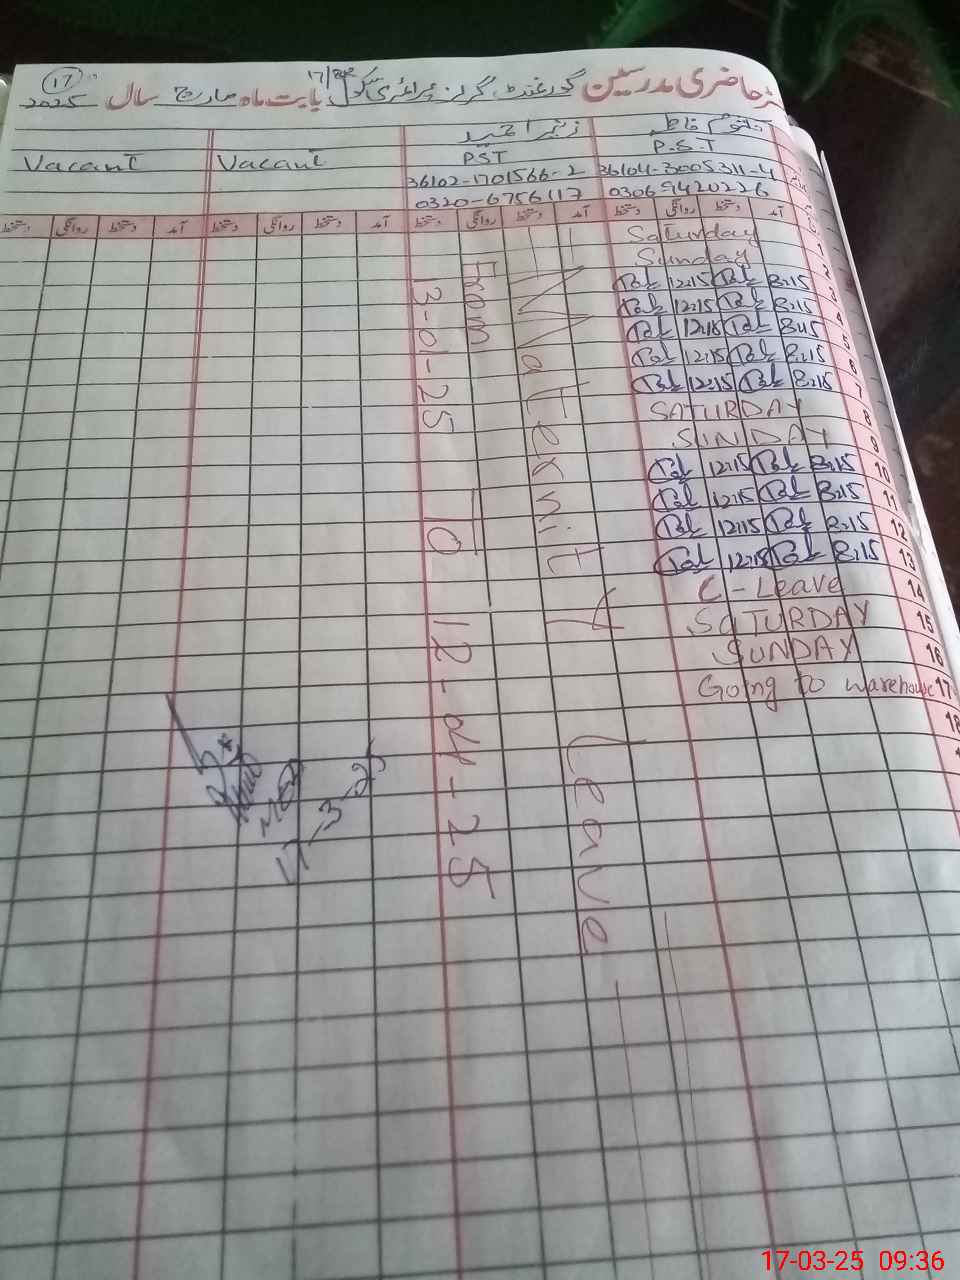 رجسٹر حاضری مدرسین گورنمنٹ گرلز پرائمری سکول 17/ بابت ماہ مارچ سال 2025
17
کلثوم فاطمہ
P.S.T
36104-3005311-4
03069420226
PST
36102-1701566-2
0320-6756117
Vacant
Vacant
آمد دستخط روانگی دستخط آمد دستخط روانگی دستخط آمد دستخط روانگی دستخط آمد دستخط روانگی دستخط
1 Saturday
2 Sunday
3 8:15 12:15
4 8:15 12:15
5 8:15 12:15
6 8:15 12:15
7 8:15 12:15
8 SATURDAY
9 SUNDAY
10 8:15 12:15
11 8:15 12:15
12 8:15 12:15
13 8:15 12:15
14 C-Leave
15 SATURDAY
16 SUNDAY
17 Going to warehouse
18
Maternity Leave
From 13-01-25 To 12-04-25
17-3-25
17-03-25 09:36